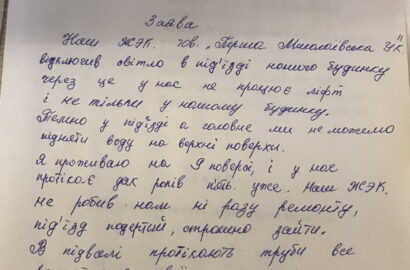 Заява
Наш ЖЭК. Тов. „Перша Миколаївська УК"
відключив світло в під'їзді нашого будинку
через це у нас не працює ліфт
і не тільки у нашому будинку.
Темно у під'їзді а головне ми не можемо
підняти воду на верхні поверхи.
Я проживаю на 9 поверсі, і у нас
протікає дах років п'ять уже. Наш ЖЭК.
не робив нам ні разу ремонту,
під'їзд подертий, страшно зайти.
В підвалі протікають труби все